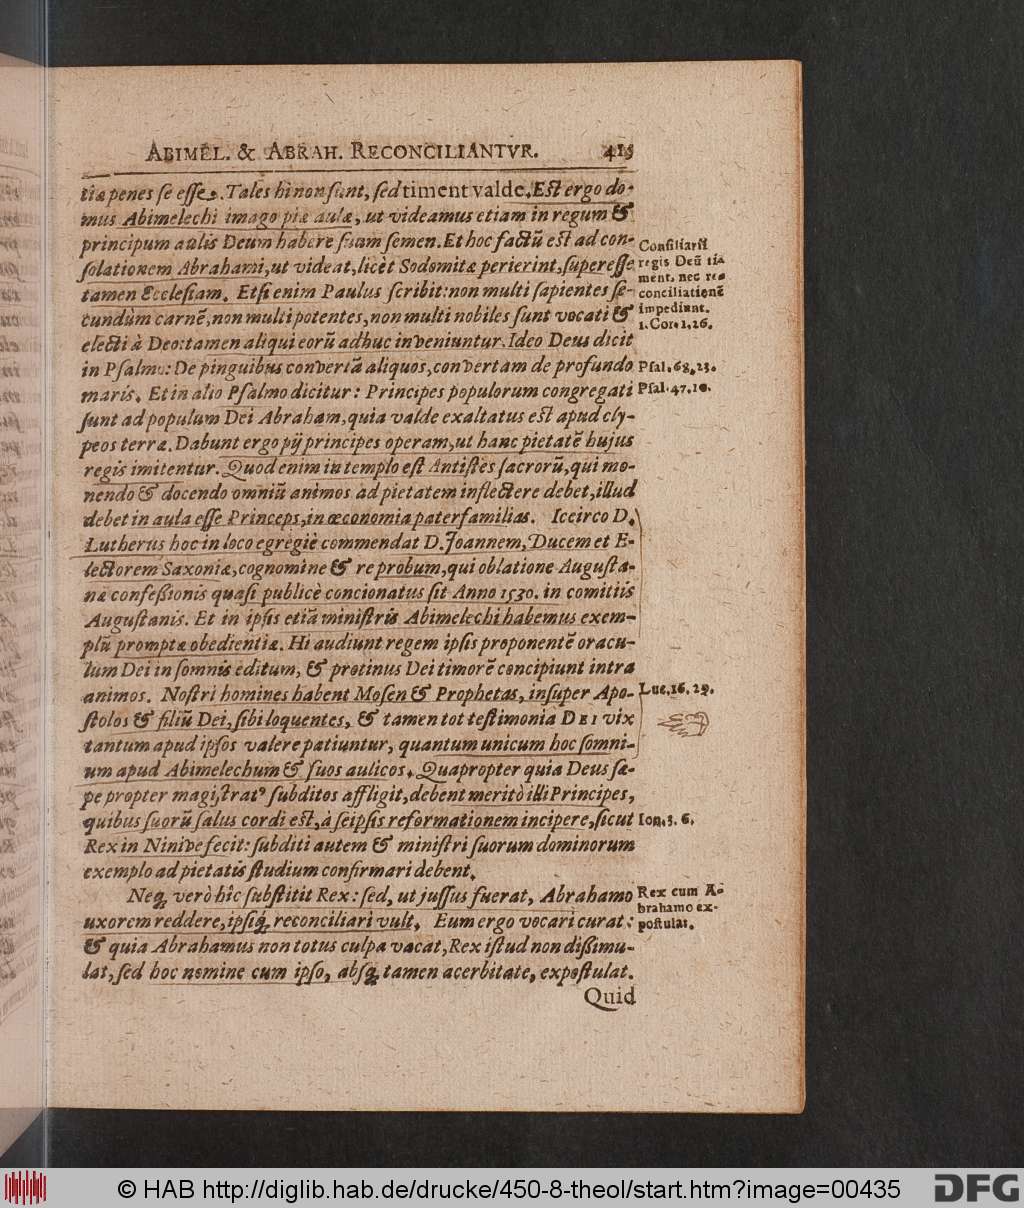 ABIMEL. & ABRAH. RECONCILIANTVR. 415
tiæ penes se esse. Tales hi non sunt, sed timent valde. Est ergo do-
mus Abimelechi imago piæ aulæ, ut videamus etiam in regum &
principum aulis Deum habere suum semen. Et hoc factũ est ad con-
solationem Abrahami, ut videat, licèt Sodomitæ perierint, superesse
tamen Ecclesiam. Etsi enim Paulus scribit: non multi sapientes se-
cundùm carnẽ, non multi potentes, non multi nobiles sunt vocati &
electi à Deo: tamen aliqui eorũ adhuc inveniuntur. Ideo Deus dicit
in Psalmo: De pinguibus convertã aliquos, convertam de profundo
maris. Et in alio Psalmo dicitur: Principes populorum congregati
sunt ad populum Dei Abraham, quia valde exaltatus est apud cly-
peos terræ. Dabunt ergo pij principes operam, ut hanc pietatẽ hujus
regis imitentur. Quod enim in templo est Antistes sacrorũ, qui mo-
nendo & docendo omniũ animos ad pietatem inflectere debet, illud
debet in aula esse Princeps, in œconomia paterfamilias. Iccirco D.
Lutherus hoc in loco egregiè commendat D. Joannem, Ducem et E-
lectorem Saxoniæ, cognomine & re probum, qui oblatione Augusta-
næ confeßionis quasi publicè concionatus sit Anno 1530. in comitiis
Augustanis. Et in ipsis etiã ministris Abimelechi habemus exem-
plũ promptæ obedientiæ. Hi audiunt regem ipsis proponentẽ oracu-
lum Dei in somnis editum, & protinus Dei timorẽ concipiunt intra
animos. Nostri homines habent Mosen & Prophetas, insuper Apo-
stolos & filiũ Dei, sibi loquentes, & tamen tot testimonia DEI vix
tantum apud ipsos valere patiuntur, quantum unicum hoc somni-
um apud Abimelechum & suos aulicos. Quapropter quia Deus sæ-
pe propter magistratꝰ subditos affligit, debent meritò illi Principes,
quibus suorũ salus cordi est, à seipsis reformationem incipere, sicut
Rex in Ninive fecit: subditi autem & ministri suorum dominorum
exemplo ad pietatis studium confirmari debent.
Neq; verò hîc substitit Rex: sed, ut jussus fuerat, Abrahamo
uxorem reddere, ipsiq; reconciliari vult. Eum ergo vocari curat:
& quia Abrahamus non totus culpa vacat, Rex istud non dißimu-
lat, sed hoc nomine cum ipso, absq; tamen acerbitate, expostulat.
Quid
Consiliarii
regis Deũ ti-
ment, nec re-
conciliationẽ
impediunt.
1. Cor. 1, 26.
Psal. 68, 23.
Psal. 47, 10.
Luc. 16. 29.
Ion. 3. 6.
Rex cum A-
brahamo ex-
postulat.
© HAB http://diglib.hab.de/drucke/450-8-theol/start.htm?image=00435
DFG